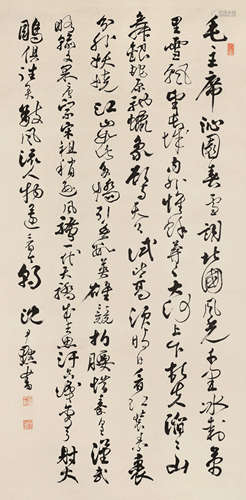 毛主席沁園春雪詞北國風光千里冰封萬
里雪飄望長城內外惟餘莽莽大河上下頓失滔滔山
舞銀蛇原馳蠟象欲與天公試比高須晴日看紅裝素裹
分外妖嬈江山如此多嬌引無數英雄競折腰惜秦皇漢武
略輸文采唐宗宋祖稍遜風騷一代天驕成吉思汗只識彎弓射大
鵰俱往矣數風流人物還看今朝 沈尹默書